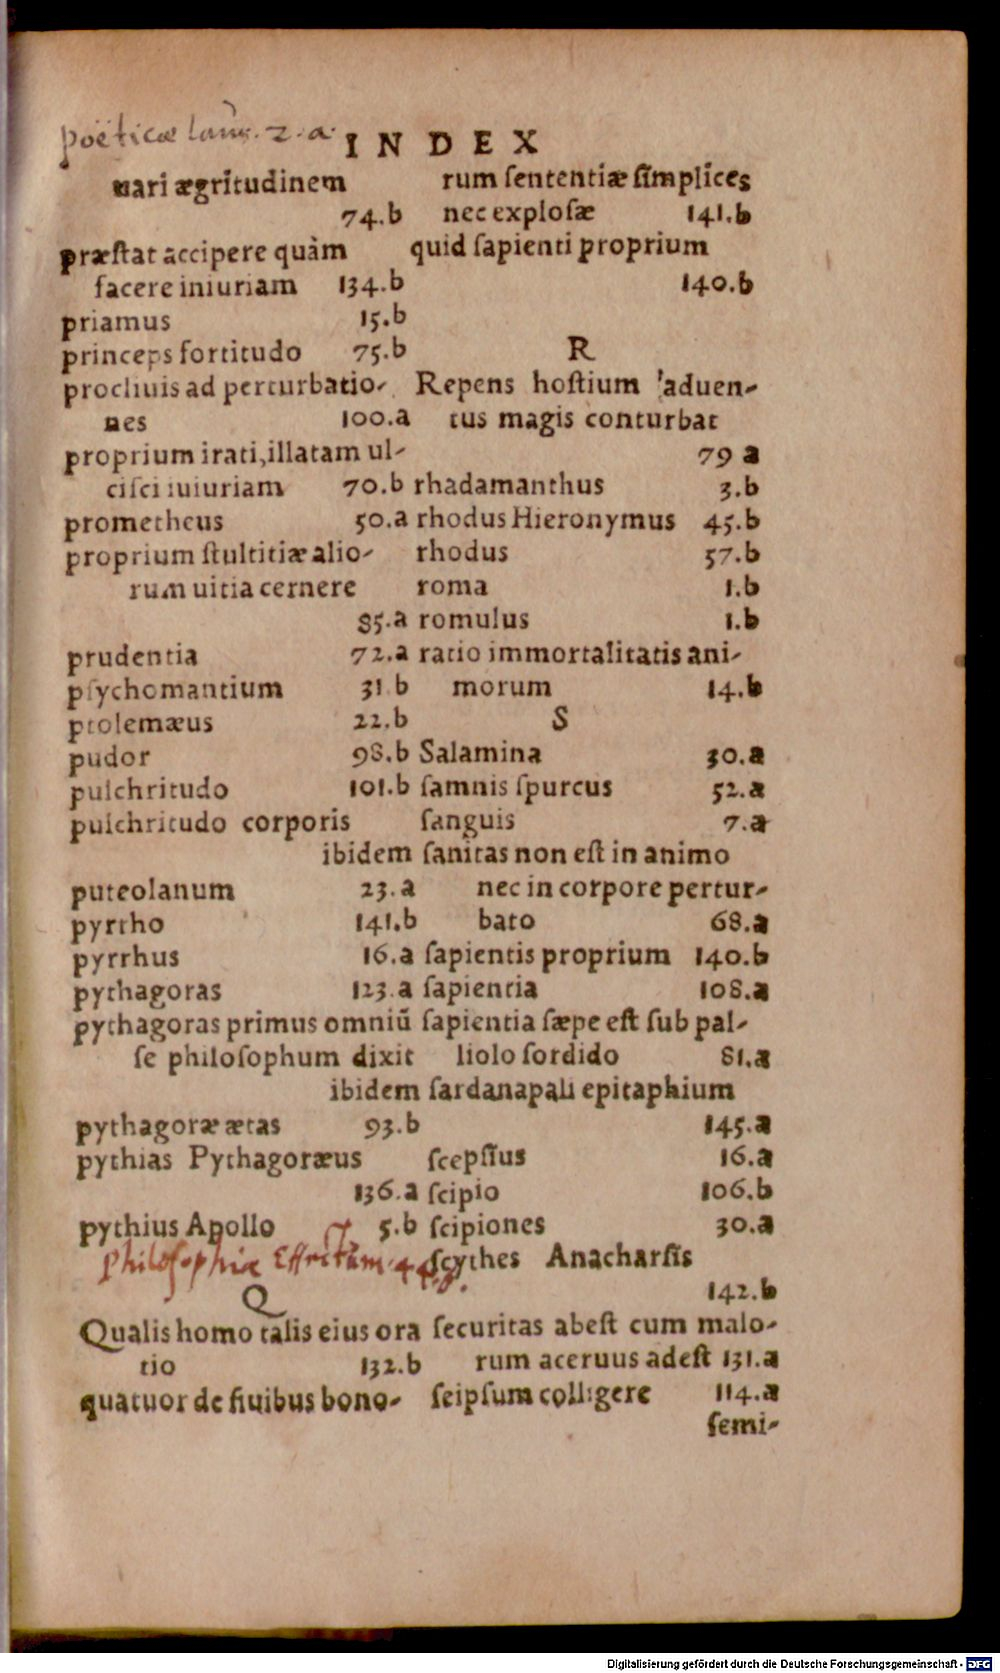 poëticæ laus. 2. a.
INDEX
uari ægritudinem
74.b
præſtat accipere quàm
facere iniuriam 134.b
priamus 15.b
princeps fortitudo 75.b
procliuis ad perturbatio-
nes 100.a
proprium irati, illatam ul-
ciſci iuiuriam 70.b
prometheus 50.a
proprium ſtultitiæ alio-
rum uitia cernere
85.a
prudentia 72.a
pſychomantium 31 b
ptolemæus 22.b
pudor 98.b
pulchritudo 101.b
pulchritudo corporis
ibidem
puteolanum 23.a
pyrrho 141.b
pyrrhus 16.a
pythagoras 123.a
pythagoras primus omniū
ſe philoſophum dixit
ibidem
pythagoræ ætas 93.b
pythias Pythagoræus
136.a
pythius Apollo 5.b
Philosophiæ Effectum. 44.b.
Q
Qualis homo talis eius ora
tio 132.b
quatuor de fiuibus bono-
rum ſententiæ ſimplices
nec exploſæ 141.b
quid ſapienti proprium
140.b
R
Repens hoſtium aduen-
tus magis conturbat
79 a
rhadamanthus 3.b
rhodus Hieronymus 45.b
rhodus 57.b
roma 1.b
romulus 1.b
ratio immortalitatis ani-
morum 14.b
S
Salamina 30.a
ſamnis ſpurcus 52.a
ſanguis 7.a
ſanitas non eſt in animo
nec in corpore pertur-
bato 68.a
ſapientis proprium 140.b
ſapientia 108.a
ſapientia ſæpe eſt ſub pal-
liolo ſordido 81.a
ſardanapali epitaphium
145.a
ſcepſius 16.a
ſcipio 106.b
ſcipiones 30.a
ſcythes Anacharſis
142.b
ſecuritas abeſt cum malo-
rum aceruus adeſt 131.a
ſeipſum colligere 114.a
ſemi-
Digitalisierung gefördert durch die Deutsche Forschungsgemeinschaft - DFG